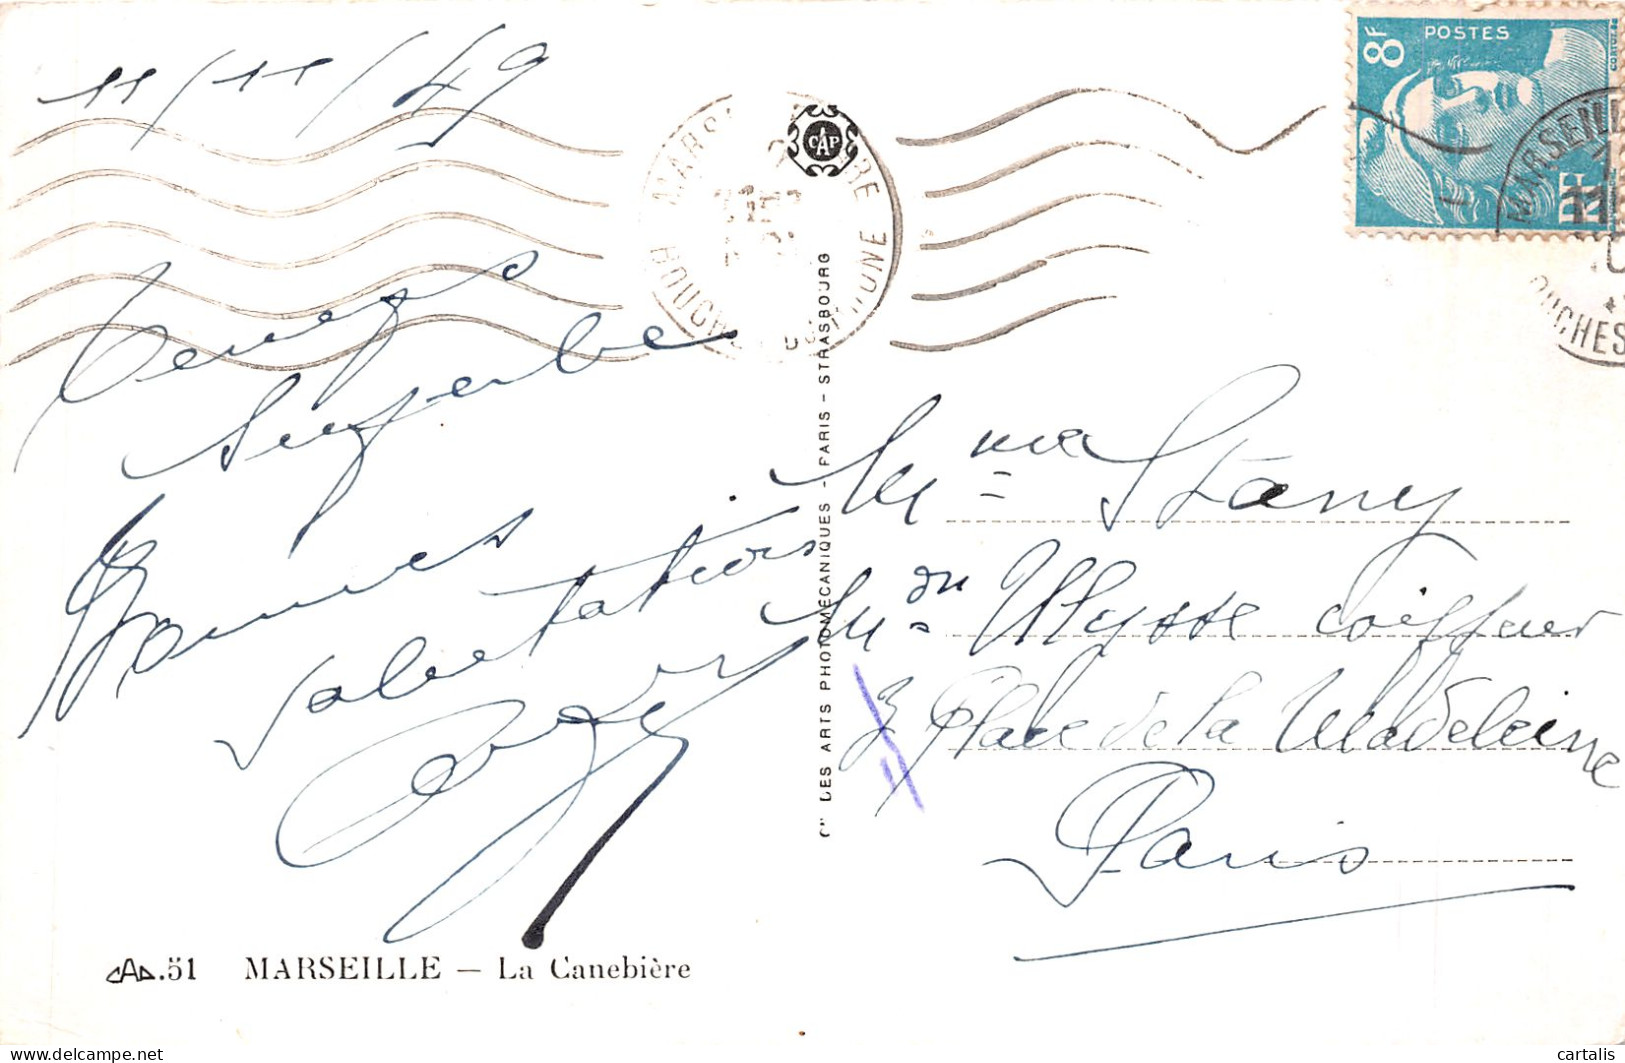 11/11/49
Temps
Superbe
Bonnes
salutations
Mme Stany
Mon Ulysse coiffeur
3 Place de la Madeleine
Paris
CAP
Cie DES ARTS PHOTOMÉCANIQUES - PARIS - STRASBOURG
8F
POSTES
RF
MARSEILLE
BOUCHES DU RHONE
MARSEILL
CAP.51 MARSEILLE — La Canebière
delcampe.net
cartalis